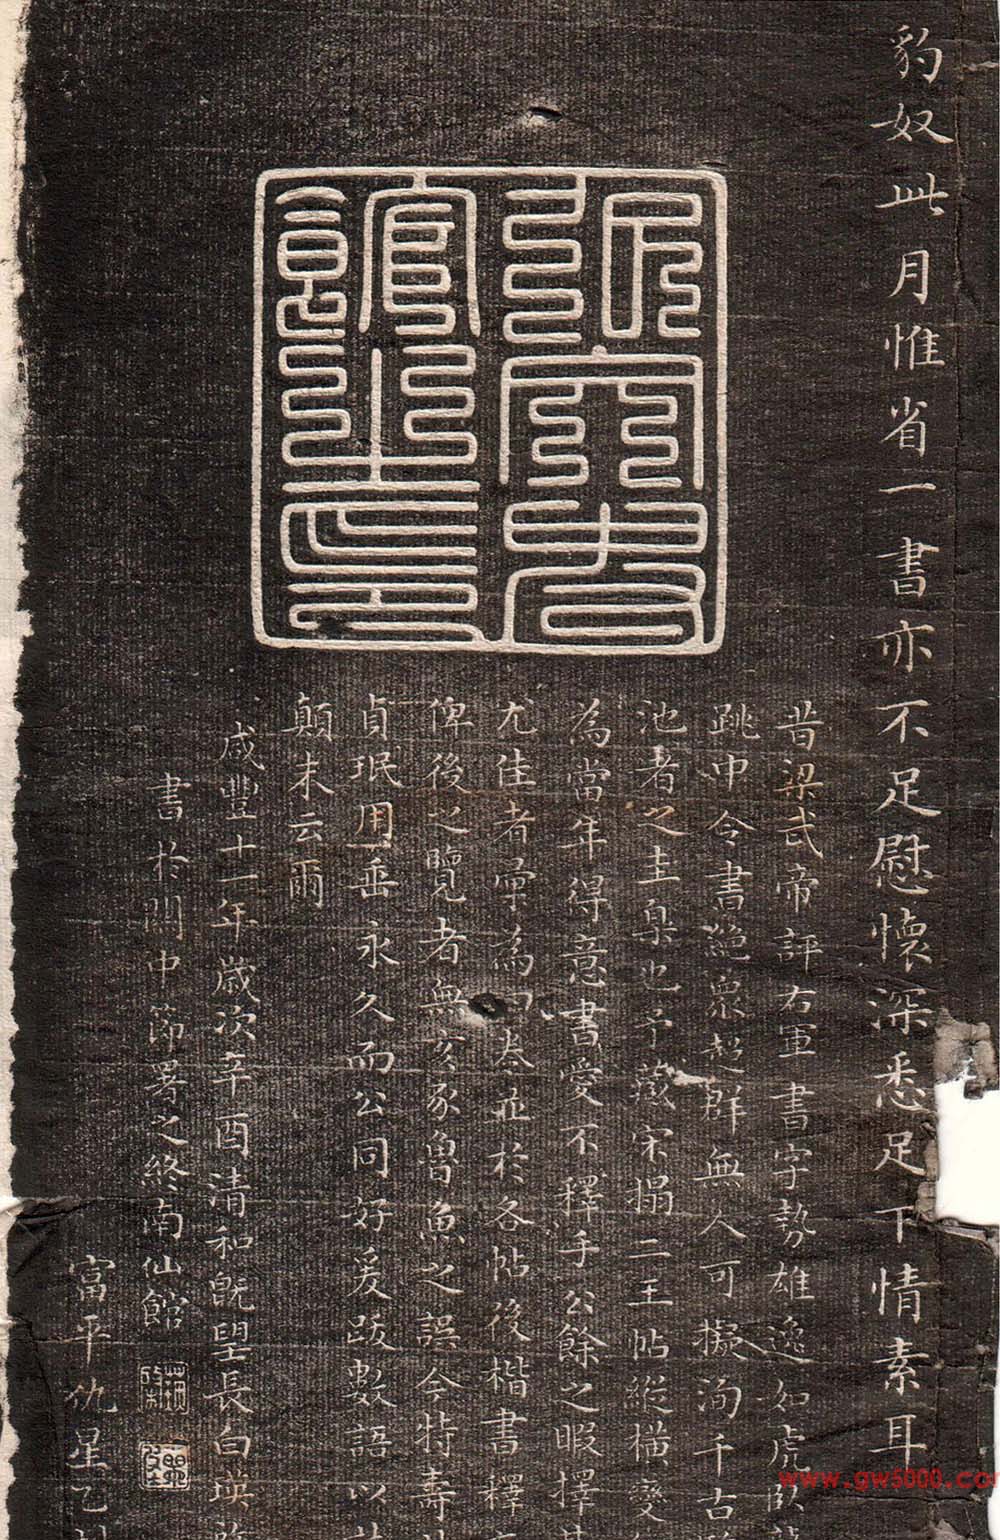 豹奴此月惟省一書亦不足慰懷深悉足下情素耳
昔梁武帝評右軍書字勢雄逸如虎臥
跳中令書絕衆超群無人可擬洵千古
池者之圭臬也予藏宋搨二王帖縱橫變
為當年得意書愛不釋手公餘之暇擇
尤佳者彙為四卷並於各帖後楷書釋
俾後之覽者無亥豕魯魚之誤今特壽
貞珉用垂永久而公同好爰跋數語以
顛末云爾
咸豐十一年歲次辛酉清和既望長白瑛
書於關中節署之終南仙館
富平仇星乙
www.gw5000.com